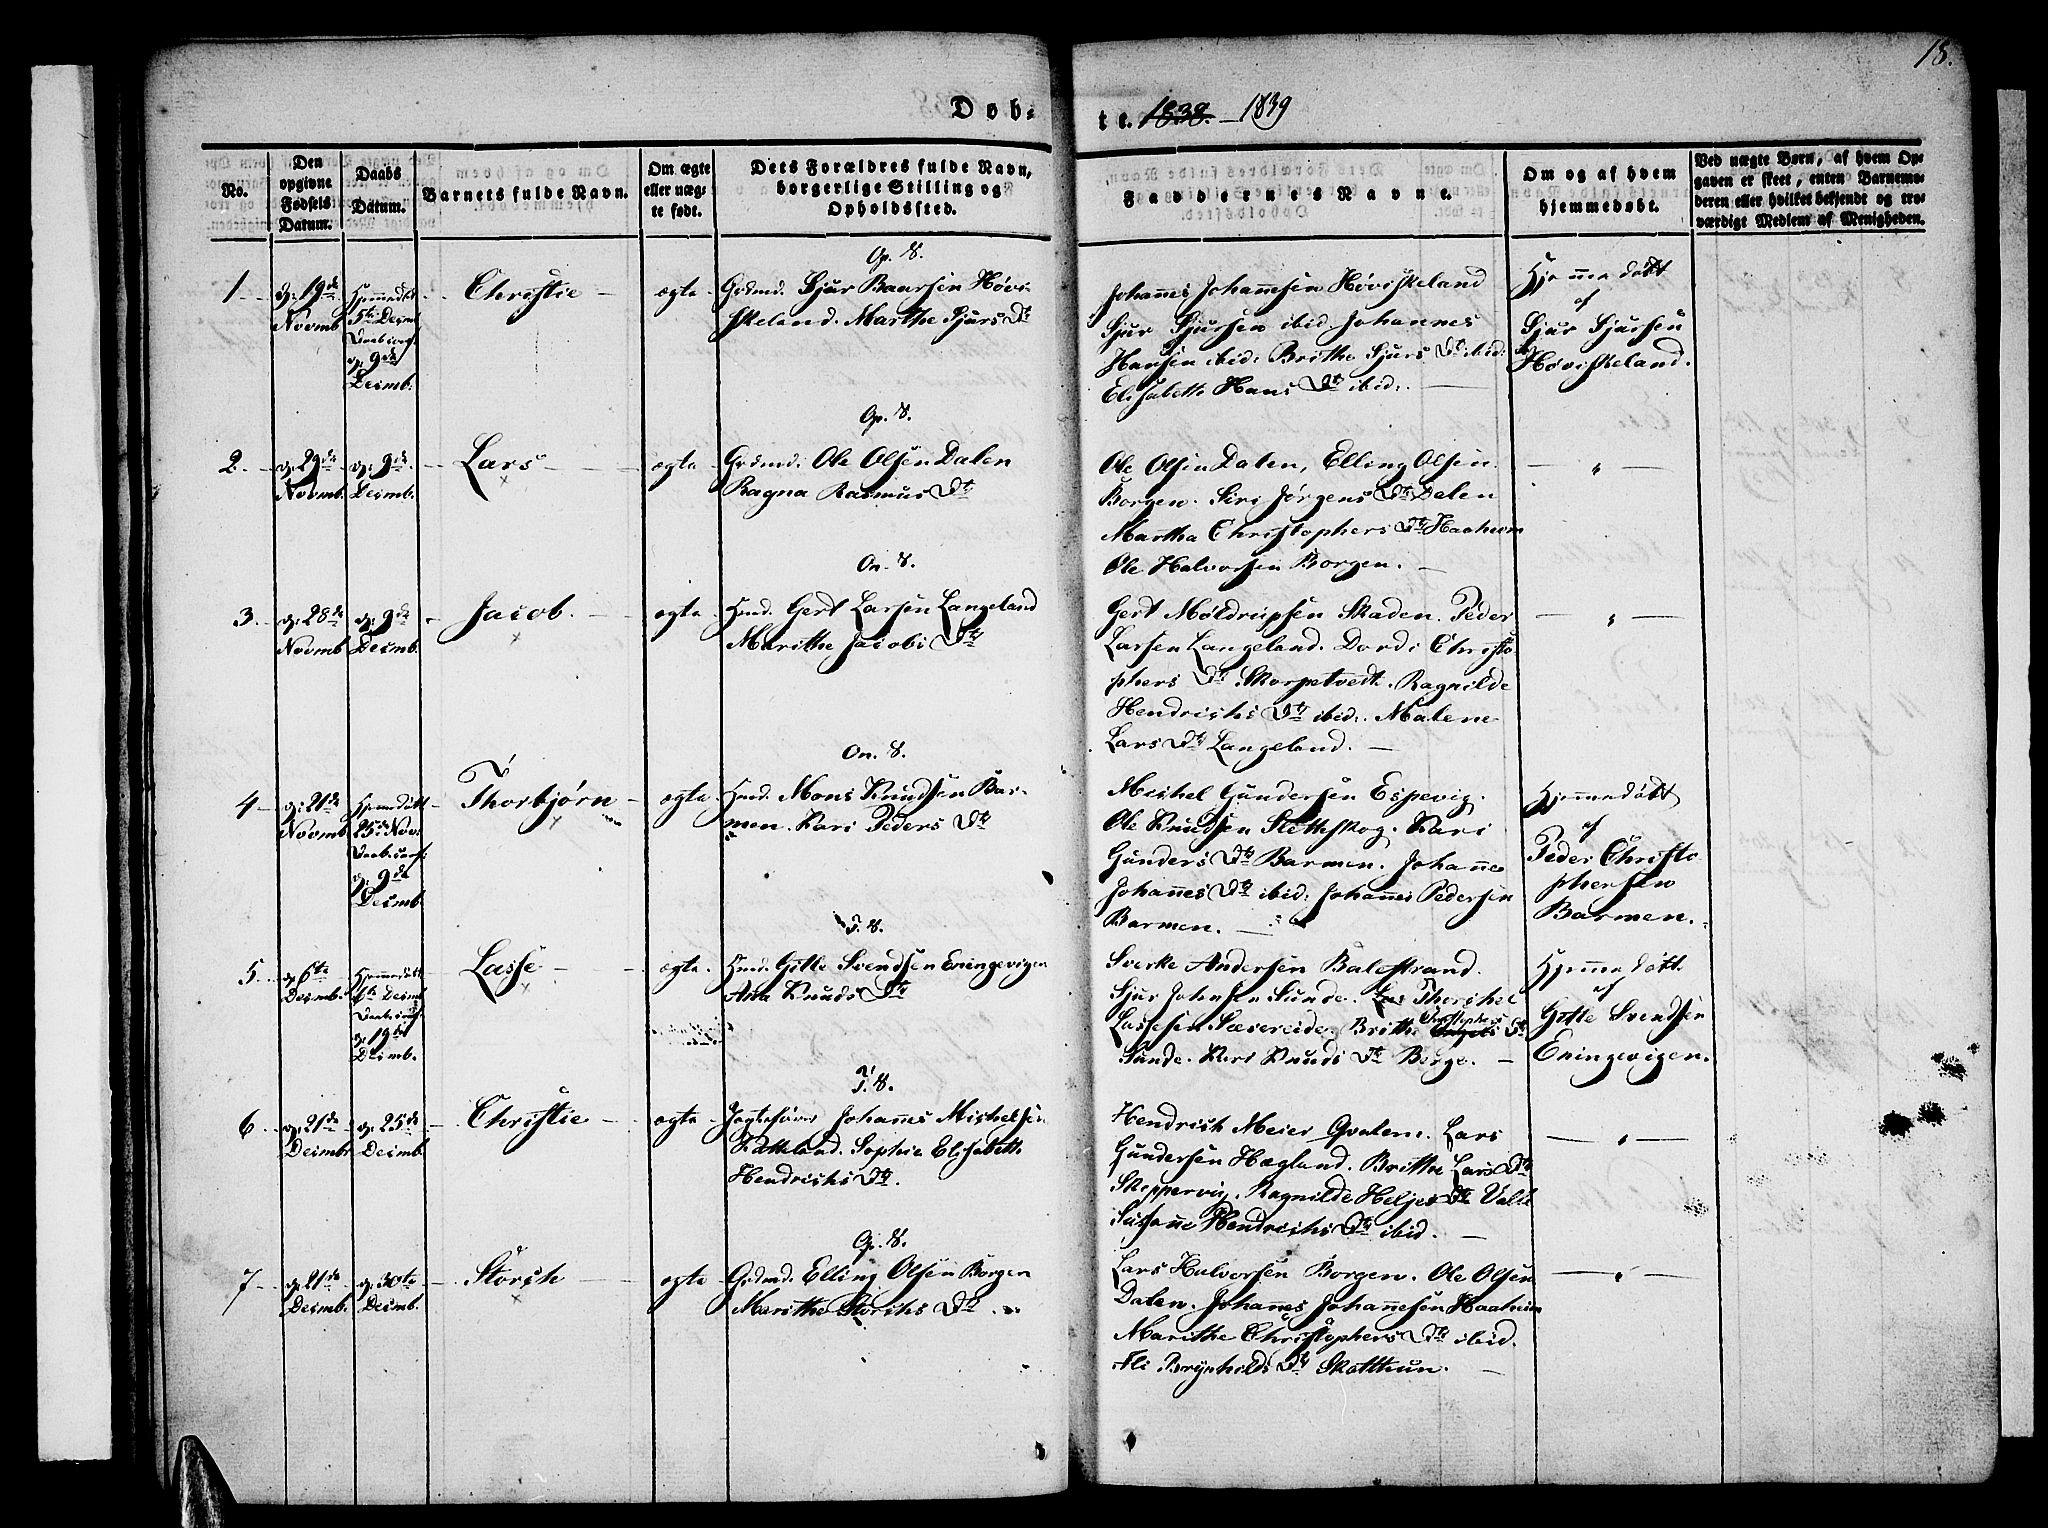 18.
Døb-
te. 1838. - 1839
No.
Den
opgivne
Fødsels
Datum.
Daabs
Datum.
Barnets fulde Navn.
Om ægte
eller uæg-
te født.
Dets Forældres fulde Navn,
borgerlige Stilling og
Opholdssted.
Faddernes Navne.
Om og af hvem
hjemmedøbt.
Ved uægte Børn, af hvem Op-
gaven er skeet, enten Barnemo-
deren eller hvilket bekjendt og tro-
værdigt Medlem af Menigheden.
1
d: 19de
Novmb.
5te Decmb
d: 9de
Decmb.
Christie
ægte
Op. S.
Grdmd. Sjur Baarsen Høvi-
skeland. Marthe Sjurs Dtr
Johannes Johannesen Høviskeland
Sjur Sjursen ibid. Johannes
Hansen ibid: Brithe Sjurs Dtr ibid:
Elisabetha Hans Dtr ibid:
Hjemmedøbt
af
Sjur Sjursen
Høviskeland.
2.
d: 29de
Novmb.
d: 9de
Decmb.
Lars
ægte
Op. S.
Grdmd. Ole Olsen Dalen
Ragna Rasmus Dtr
Ole Olsen Dalen, Elling Olsen
Borgen. Siri Jørgens Dtr Dalen
Martha Christophers Dtr Haaheim
Ole Halvorsen Borgen.
3.
d: 28de
Novmb.
d: 9de
Decmb.
Jacob.
ægte
On. S.
Hmd. Gert Larsen Langeland
Marithe Jacobs Dtr
Gert Møldrupsen Skaden. Peder
Larsen Langeland. Dordi Christo-
phers Dtr Skorpetvedt. Ragnilde
Hendrichs Dtr ibid: Malene
Lars Dtr Langeland.
4
d: 21de
Novmb
Hjemmedøbt
25de Nov:
d: 9de
Decmb.
Thorbjørn
ægte
On. S.
Hmd. Mons Knudsen Bar-
men. Kari Peders Dtr
Michel Gundersen Espevig.
Ole Knudsen Slethskog. Kari
Gunders Dtr Barmen. Johanne
Johannes Dtr ibid: Johannes Pedersen
Barmen.
Hjemmedøbt
af
Peder Christo
phersen
Barmen.
5
d: 6te
Decmb.
Hjemmedøbt
Decmb
d: 19de
Decmb.
Lasse
ægte
T. S.
Hmd. Gitle Svendsen Eningevigen
Ana Knuds Dtr
Sverke Andersen Balestrand.
Sjur Johnsen Sunde. Thorchel
Lassesen Sævereide. Brithe Christophers Dtr
Sunde. Kari Knuds Dtr Borge.
Hjemmedøbt
af
Gitle Svendsen
Eningevigen.
6
d: 21de
Decmb
d: 25de
Decmb.
Christie
ægte
T. S.
Jagtefører Johannes Michelsen
Sophie Elisabeth
Hendrichs Dtr.
Hendrich Meier Qvalem. Lars
Gundersen Hægland. Brithe Lars Dtr
Skeppervig. Ragnilde Heljes Dtr Valle
Susanne Hendrichs Dtr ibid.
7
d: 21de
Decmb.
d: 30te
Decmb.
Storch
ægte
Op. S.
Grdmd. Elling Olsen Borgen
Marithe Storchs Dtr
Lars Halvorsen Borgen. Ole Olsen
Dalen. Johannes Johannesen Haaheim
Marithe Christophers Dtr ibid.
Ali Brynhilds Dtr Skotthun.